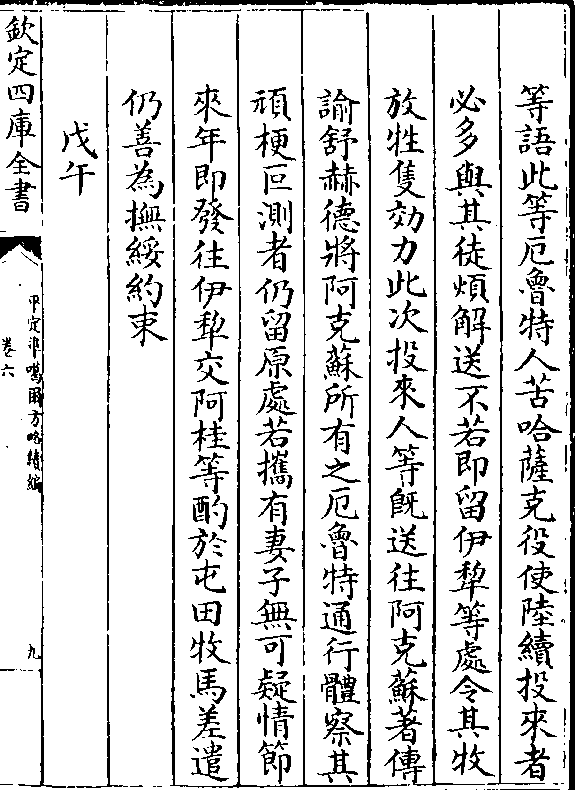 等語此等厄魯特人苦哈薩克役使陸續投來者
必多與其徒煩解送不若即留伊犂等處令其牧
放牲隻効力此次投來人等既送往阿克蘇著傳
諭舒赫德將阿克蘇所有之厄魯特通行體察其
頑梗叵測者仍留原處若攜有妻子無可疑情節
來年即發往伊犂交阿桂等酌於屯田牧馬差遣
仍善為撫綏約束
戊午
欽定四庫全書
平定準噶爾方略續編
卷六
九